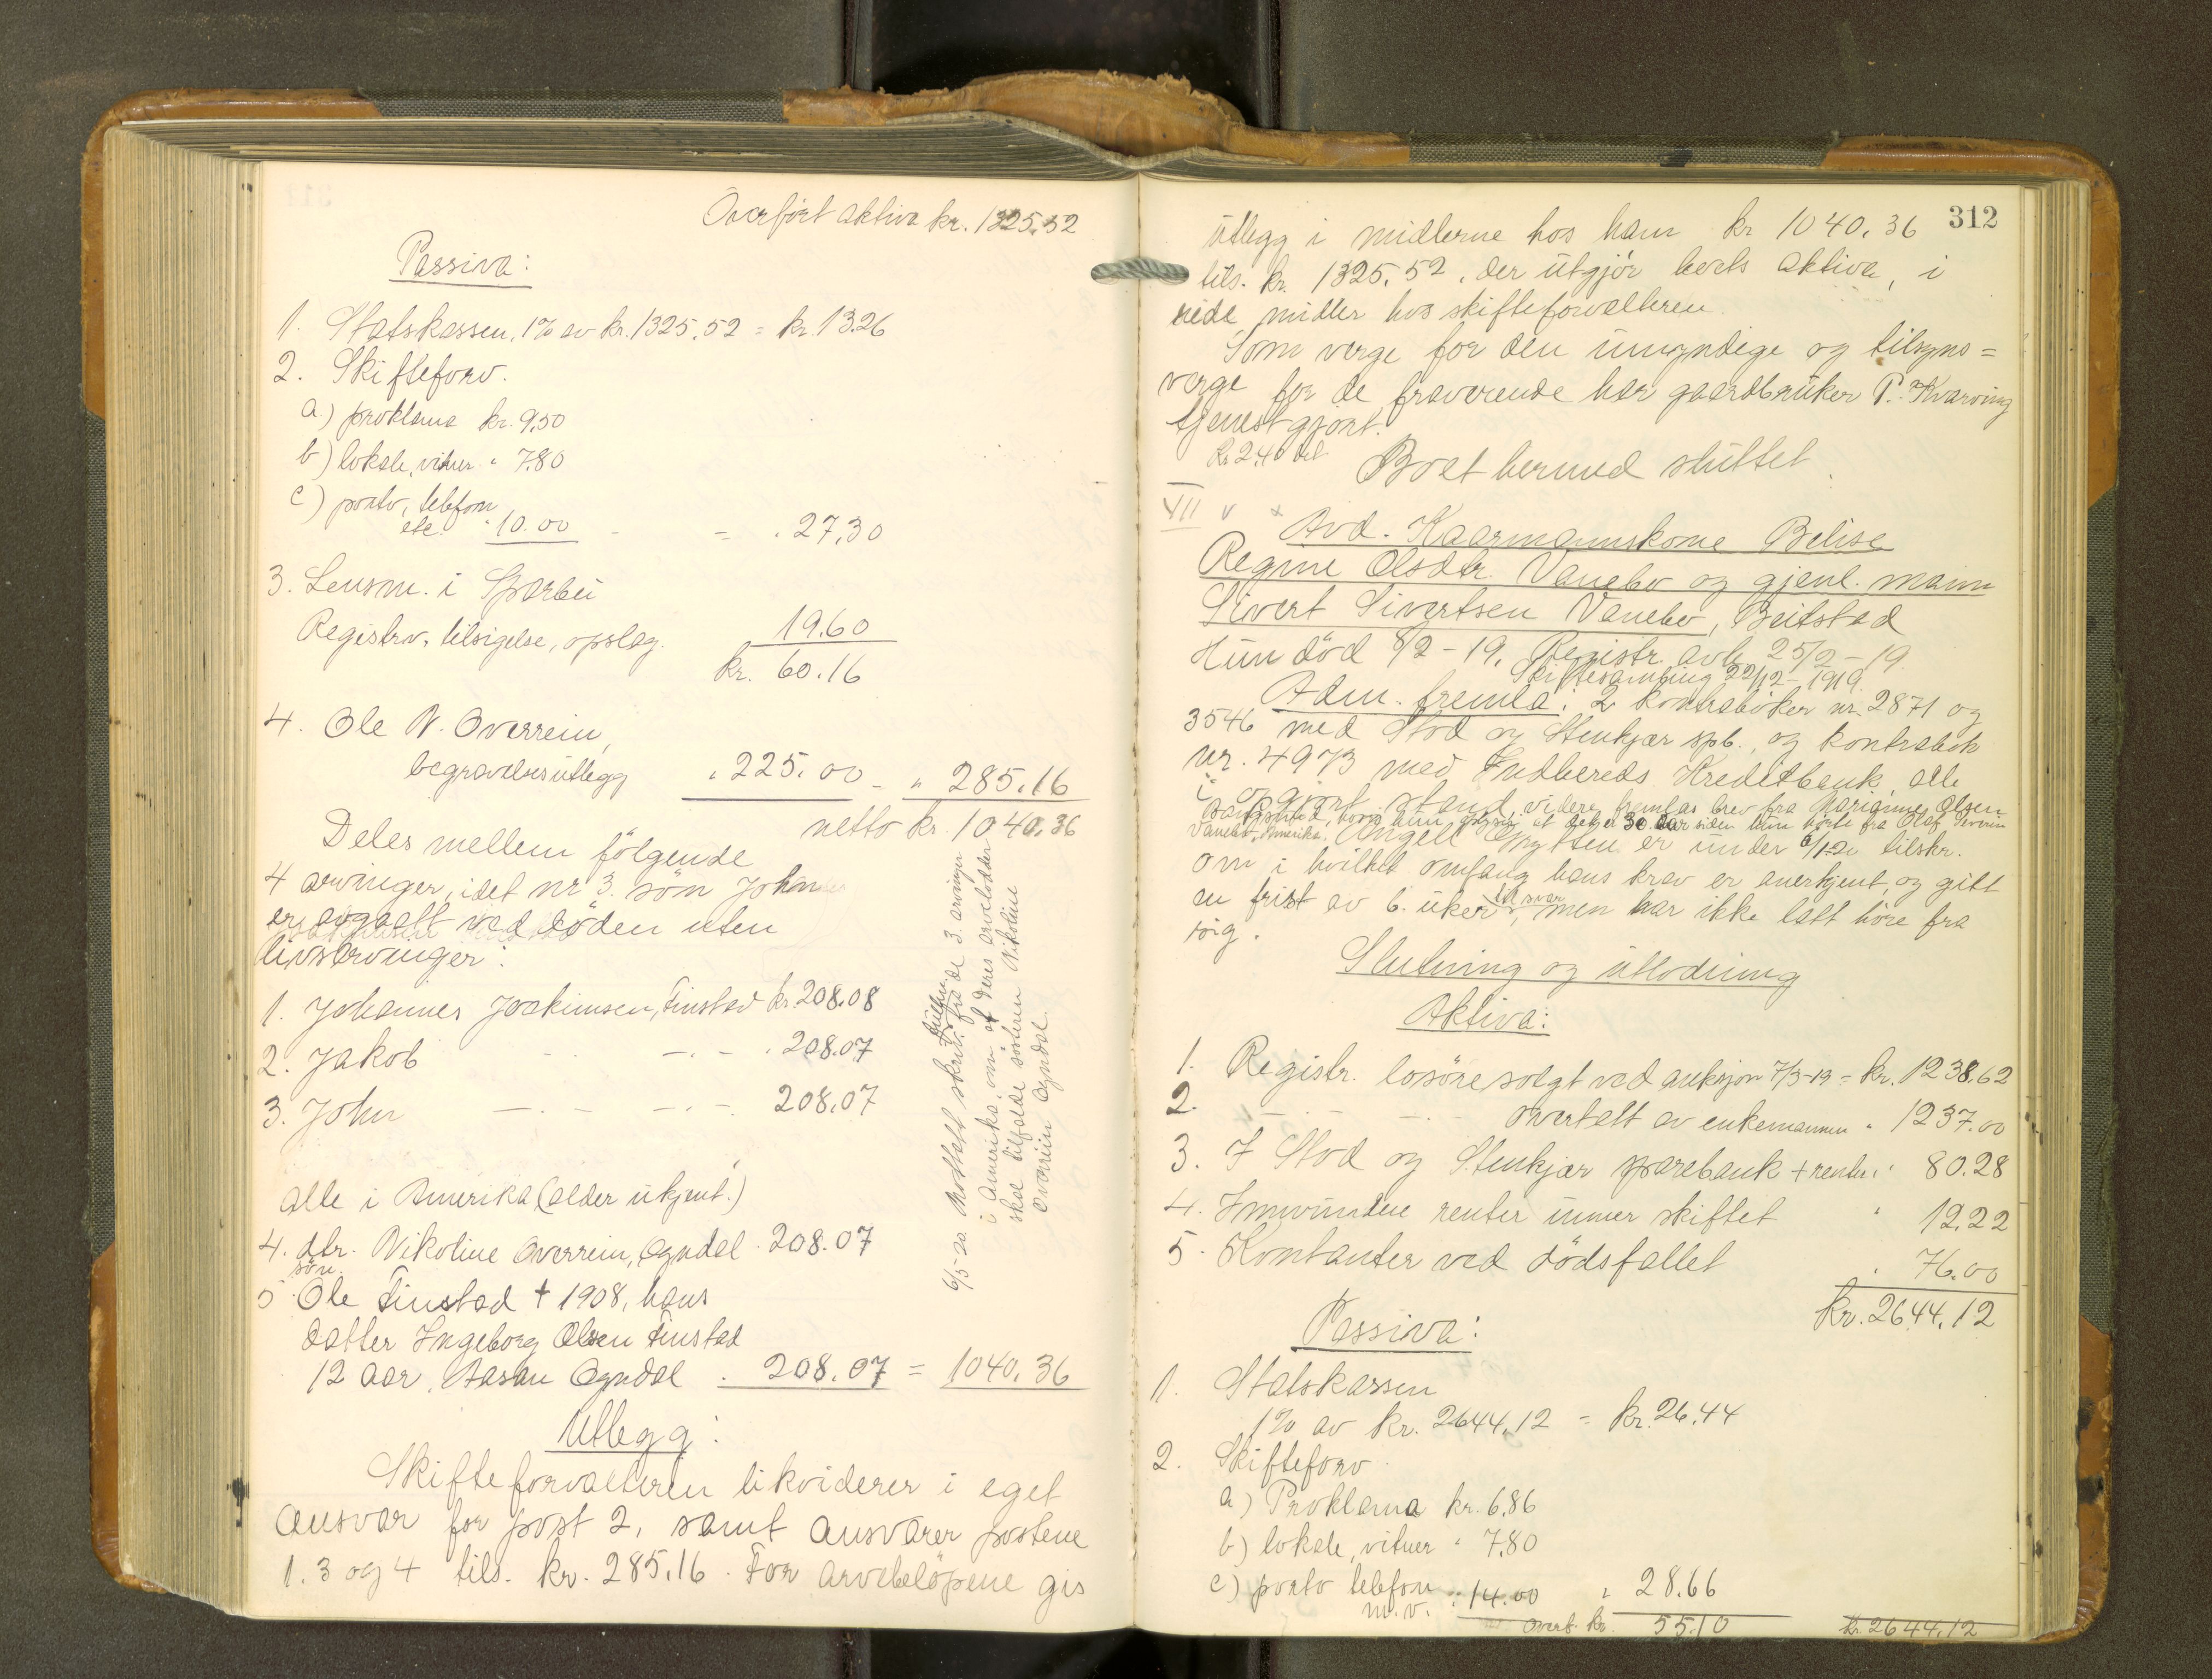 Overført aktiva kr. 1325.52
Passiva:
1. Statskassen, 1% av kr. 1325.52 = kr. 13.26
2. Skifteforv.
a) proklama kr. 9.50
b) lokale, vitner " 7.80
c) porto, telefon
etc. " 10.00 - = " 27.30
3. Lensm. i Sparbu
Registrv. tilsigelse, opslag. 19.60
kr. 60.16
4. Ole N. Overrein,
begravelsesutlegg " 225.00 - " 285.16
netto kr. 1040.36
Deles mellem følgende
4 arvinger, idet nr 3. søn Johan
er avgaatt ved døden uten
livsarvinger:
1. Johannes Joakimsen, Finstad kr. 208.08
2. Jakob - - - " 208.07
3. John - - - - 208.07
alle i Amerika (alder ukjent.)
4. dtr. Nikoline Overrein, Ogndal . 208.07
søn.
5 Ole Finstad † 1908, hans
datter Ingeborg Olsen Finstad
12 aar, Aasan Ogndal . 208.07 = 1040.36
6/5-20 Mottatt skriv. fra de 3. arvinger
i Amerika, om at deres arvelodder
skal tilfalde søsteren Nikoline
Overrein Ogndal.
Utlegg:
Skifteforvalteren likviderer i eget
ansvar for post 2, samt ansvarer postene
1. 3 og 4 tils. kr. 285.16. For arvebeløpene gis
312
utlegg i midlerne hos ham kr 1040.36
tils. kr. 1325.52, der utgjør boets aktiva, i
rede midler hos skifteforvalteren.
Som verge for den umyndige og tilsyns=
verge for de fraværende har gaardbruker P. Kvarving
tjenestgjort.
Kr 2.40 bet
Boet hermed sluttet.
VII v x
Avd. Kaarmannskone Belise
Regine Olsdtr. Vanebo og gjenl. mann
Sivert Sivertsen Vanebo, Beitstad
Hun død 8/2-19. Registr. avh. 25/2-19.
Skiftesamling 22/12-1919.
Adm. fremla: 2 kontrabøker nr. 2871 og
3546 med Stod og Stenkjær spb., og kontrabok
nr. 4973 med Indhereds Kreditbank, alle
i opgjort stand, videre fremlas brev fra Marianne Olsen
hvori hun oplyser at det er 30 aar siden hun hørte fra Olaf Severin
Vanebo, Amerika. Angell er under 6/1-20 tilskr.
om i hvilket omfang hans krav er anerkjent, og gitt
en frist av 6. uker til svar, men har ikke latt høre fra
sig.
Slutning og utlodning
Aktiva:
1. Registr. losøre solgt ved auksjon 7/3-19 = kr. 1238.62
2. - - - - overtatt av enkemannen " 1237.00
3. I Stod og Stenkjær sparebank + renter " 80.28
4. Innvundne renter unner skiftet " 12.22
5. Kontanter ved dødsfallet " 76.00
kr. 2644.12
Passiva:
1. Statskassen
1% av kr. 2644.12 = kr. 26.44
2. Skifteforv.
a) Proklama kr. 6.86
b) lokale, vitner " 7.80
c) porto telefon
m.v. " 14.00 " 28.66
overf. kr. 55.10 kr. 2644.12